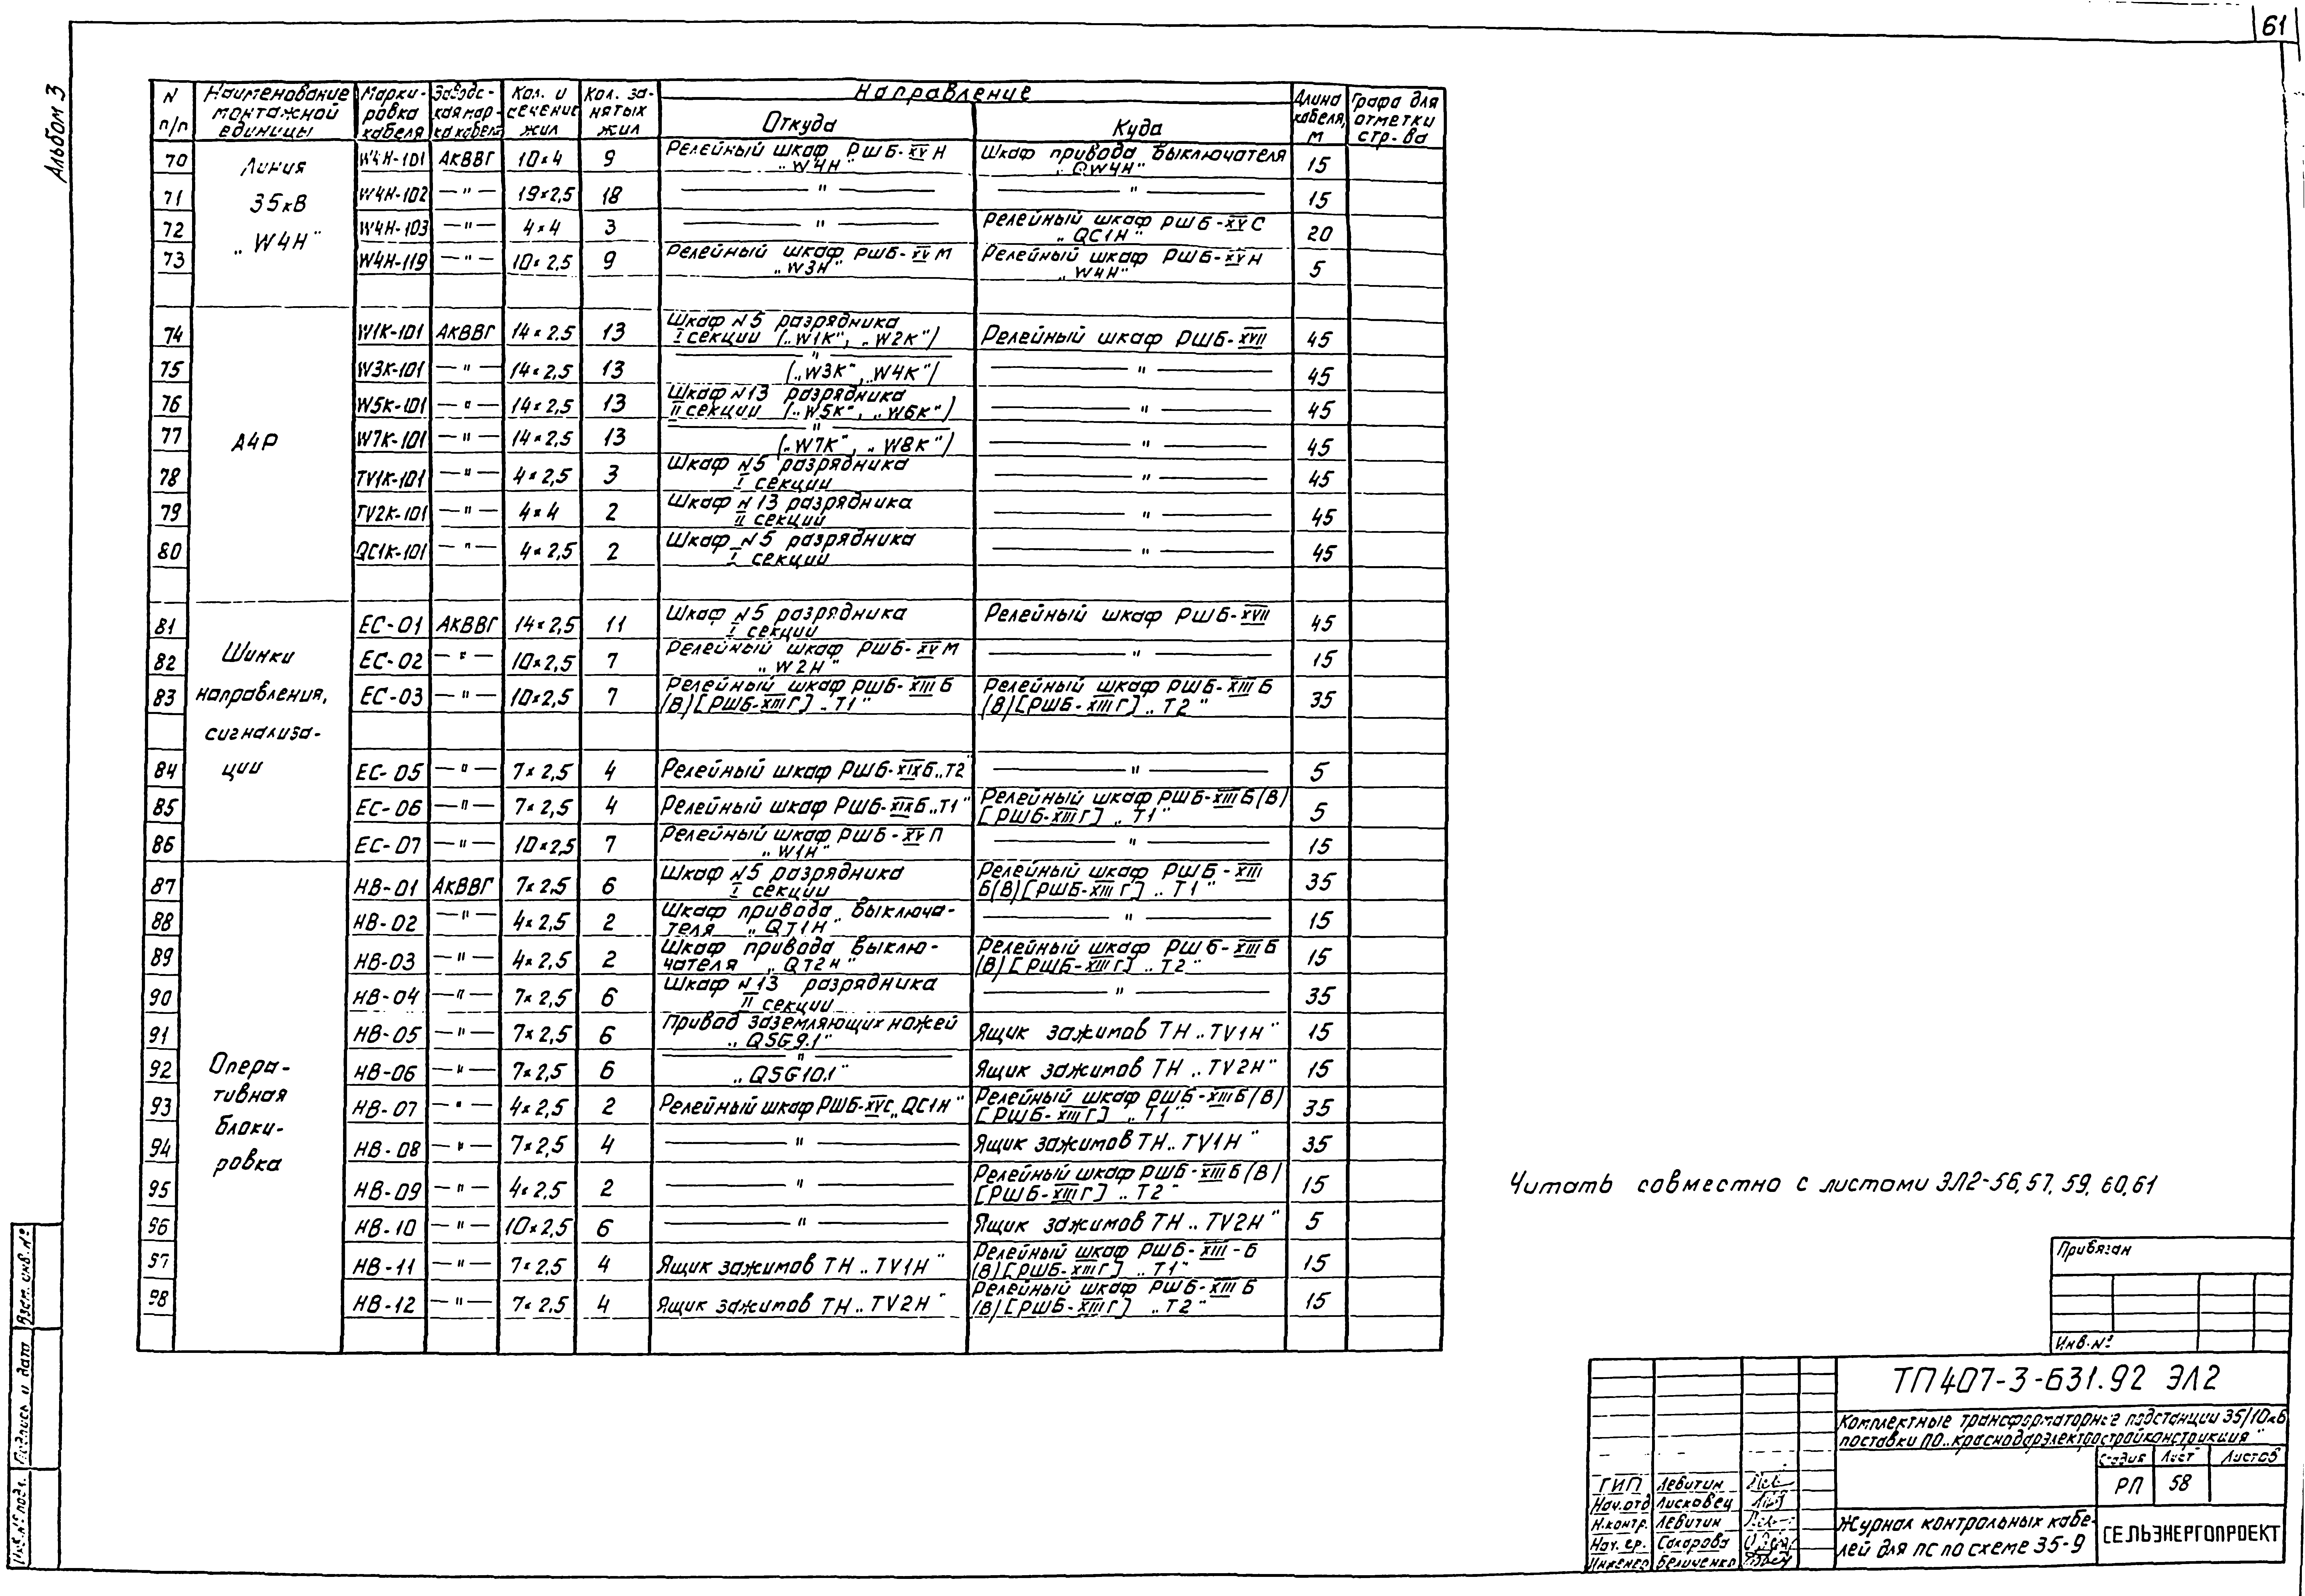 61
Альбом 3
N п/п | Наименование монтажной единицы | Марки-ровка кабеля | Заводс-кая мар-ка кабеля | Кол. и сечение жил | Кол. за-нятых жил | Направление | Длина кабеля, м | Графа для отметки стр-ва
Откуда | Куда
Линия 35кВ „W4H"
70 | W4H-101 | АКВВГ | 10×4 | 9 | Релейный шкаф РШБ-XV Н „W4H" | Шкаф привода выключателя „QW4H" | 15
71 | W4H-102 | —"— | 19×2,5 | 18 | —"— | —"— | 15
72 | W4H-103 | —"— | 4×4 | 3 | —"— | Релейный шкаф РШБ-XV С „QC1H" | 20
73 | W4H-119 | —"— | 10×2,5 | 9 | Релейный шкаф РШБ-XV М „W3H" | Релейный шкаф РШБ-XV Н „W4H" | 5
АЧР
74 | W1K-101 | АКВВГ | 14×2,5 | 13 | Шкаф N5 разрядника I секции („W1K", „W2K") | Релейный шкаф РШБ-XVII | 45
75 | W3K-101 | —"— | 14×2,5 | 13 | —"— („W3K", „W4K") | —"— | 45
76 | W5K-101 | —"— | 14×2,5 | 13 | Шкаф N13 разрядника II секции („W5K", „W6K") | —"— | 45
77 | W7K-101 | —"— | 14×2,5 | 13 | —"— („W7K", „W8K") | —"— | 45
78 | TV1K-101 | —"— | 4×2,5 | 3 | Шкаф N5 разрядника I секции | —"— | 45
79 | TV2K-101 | —"— | 4×4 | 2 | Шкаф N13 разрядника II секций | —"— | 45
80 | QC1K-101 | —"— | 4×2,5 | 2 | Шкаф N5 разрядника I секции | —"— | 45
Шинки направления, сигнализа-ции
81 | ЕС-01 | АКВВГ | 14×2,5 | 11 | Шкаф N5 разрядника I секции | Релейный шкаф РШБ-XVII | 45
82 | ЕС-02 | —"— | 10×2,5 | 7 | Релейный шкаф РШБ-XV М „W2H" | —"— | 15
83 | ЕС-03 | —"— | 10×2,5 | 7 | Релейный шкаф РШБ-XIII Б (В)[РШБ-XIII Г] „Т1" | Релейный шкаф РШБ-XIII Б (В)[РШБ-XIII Г] „Т2" | 35
84 | ЕС-05 | —"— | 7×2,5 | 4 | Релейный шкаф РШБ-XIX Б „Т2" | —"— | 5
85 | ЕС-06 | —"— | 7×2,5 | 4 | Релейный шкаф РШБ-XIX Б „Т1" | Релейный шкаф РШБ-XIII Б(В) [РШБ-XIII Г] „Т1" | 5
86 | ЕС-07 | —"— | 10×2,5 | 7 | Релейный шкаф РШБ-XV П „W1H" | —"— | 15
Опера-тивная блоки-ровка
87 | НВ-01 | АКВВГ | 7×2,5 | 6 | Шкаф N5 разрядника I секции | Релейный шкаф РШБ-XIII Б(В)[РШБ-XIII Г] „Т1" | 35
88 | НВ-02 | —"— | 4×2,5 | 2 | Шкаф привода выключа-теля „QT1H" | —"— | 15
89 | НВ-03 | —"— | 4×2,5 | 2 | Шкаф привода выклю-чателя „QT2H" | Релейный шкаф РШБ-XIII Б (В)[РШБ-XIII Г] „Т2" | 15
90 | НВ-04 | —"— | 7×2,5 | 6 | Шкаф N13 разрядника II секции | —"— | 35
91 | НВ-05 | —"— | 7×2,5 | 6 | Привод заземляющих ножей „QSG9.1" | Ящик зажимов ТН „TV1H" | 15
92 | НВ-06 | —"— | 7×2,5 | 6 | —"— „QSG10.1" | Ящик зажимов ТН „TV2H" | 15
93 | НВ-07 | —"— | 4×2,5 | 2 | Релейный шкаф РШБ-XVС „QC1H" | Релейный шкаф РШБ-XIII Б(В) [РШБ-XIII Г] „Т1" | 35
94 | НВ-08 | —"— | 7×2,5 | 4 | —"— | Ящик зажимов ТН „TV1H" | 35
95 | НВ-09 | —"— | 4×2,5 | 2 | —"— | Релейный шкаф РШБ-XIII Б(В) [РШБ-XIII Г] „Т2" | 15
96 | НВ-10 | —"— | 10×2,5 | 6 | —"— | Ящик зажимов ТН „TV2H" | 5
97 | НВ-11 | —"— | 7×2,5 | 4 | Ящик зажимов ТН „TV1H" | Релейный шкаф РШБ-XIII-Б (В)[РШБ-XIII Г] „Т1" | 15
98 | НВ-12 | —"— | 7×2,5 | 4 | Ящик зажимов ТН „TV2H" | Релейный шкаф РШБ-XIII Б (В)[РШБ-XIII Г] „Т2" | 15
Читать совместно с листами ЭЛ2-56,57, 59, 60,61
Привязан
Инв.№
ТП407-3-631.92 ЭЛ2
Комплектные трансформаторные подстанции 35/10кВ
поставки ПО „Краснодарэлектростройконструкция"
Стадия | Лист | Листов
РП | 58
ГИП Левитин
Нач.отд Лисковец
Н.контр. Левитин
Нач. гр. Сахарова
Инженер Величенко
Журнал контрольных кабе-
лей для ПС по схеме 35-9
СЕЛЬЭНЕРГОПРОЕКТ
Взам. инв. №
Подпись и дата
Инв. № подл.